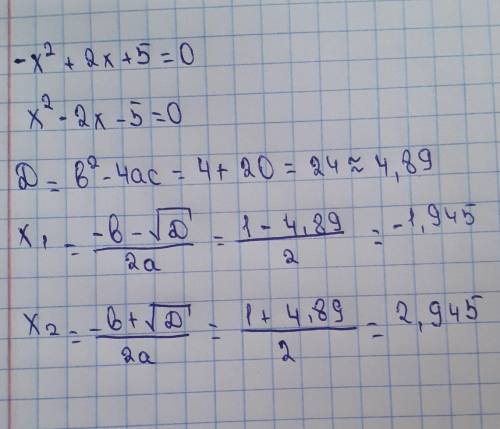 -x² + 2x + 5 = 0
x² - 2x - 5 = 0
D = b² - 4ac = 4 + 20 = 24 ≈ 4,89
x₁ = (-b - √D)/2a = (1 - 4,89)/2 = -1,945
x₂ = (-b + √D)/2a = (1 + 4,89)/2 = 2,945